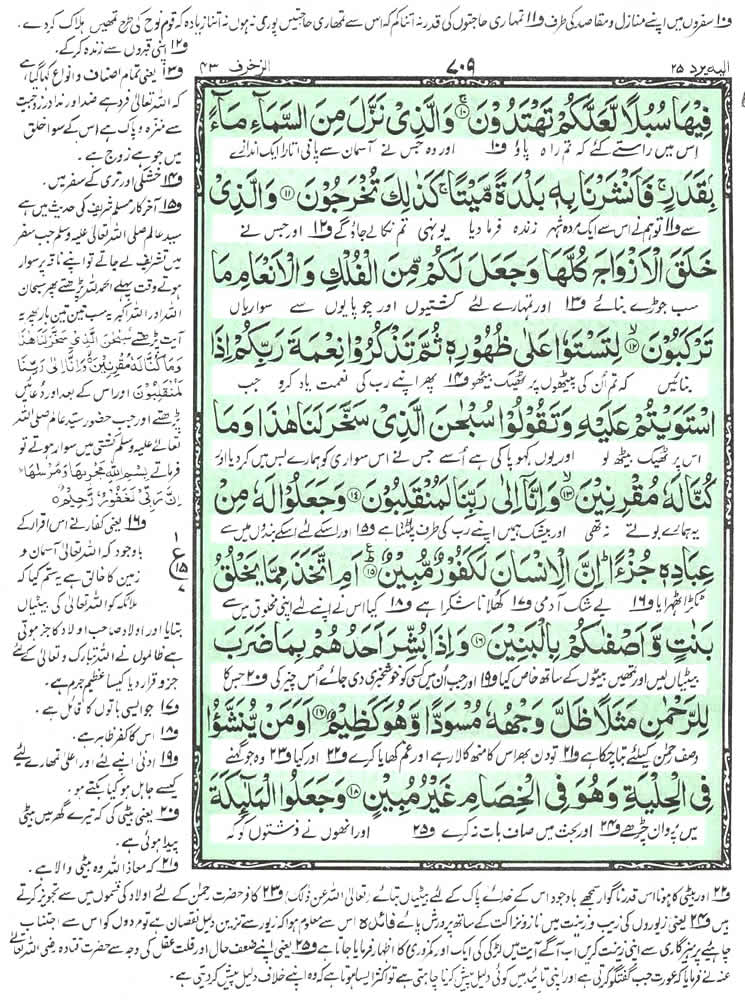 ف۱۰ سفروں میں اپنے منازل و مقاصد کی طرف ف۱۱ تمہاری حاجتوں کی قدر نہ اتنا کم کہ اس سے تمھاری حاجتیں پوری نہ ہوں نہ اتنا زیادہ کہ قوم نوح کی طرح تمھیں ہلاک کردے۔
ف۱۲ اپنی قبروں سے زندہ کرکے۔
الیہ یرد ۲۵
۷۰۹
الزخرف ۴۳
فِیْهَا سُبُلًا لَّعَلَّكُمْ تَهْتَدُوْنَ ۱۰ وَالَّذِیْ نَزَّلَ مِنَ السَّمَآءِ مَآءً
اس میں راستے کئے کہ تم راہ پاؤ ف۱۰ اور وہ جس نے آسمان سے پانی اتارا ایک اندازے
بِقَدَرٍ فَاَنْشَرْنَا بِهٖ بَلْدَةً مَّیْتًا كَذٰلِكَ تُخْرَجُوْنَ ۱۱ وَالَّذِیْ
سے ف۱۱ تو ہم نے اس سے ایک مردہ شہر زندہ فرما دیا یونہی تم نکالے جاؤگے ف۱۲ اور جس نے
خَلَقَ الْاَزْوَاجَ كُلَّهَا وَجَعَلَ لَكُمْ مِّنَ الْفُلْكِ وَالْاَنْعَامِ مَا
سب جوڑے بنائے ف۱۳ اور تمہارے لئے کشتیوں اور چوپایوں سے سواریاں
تَرْكَبُوْنَ ۱۲ لِتَسْتَوٗا عَلٰی ظُهُوْرِهٖ ثُمَّ تَذْكُرُوْا نِعْمَةَ رَبِّكُمْ اِذَا
بنائیں کہ تم ان کی پیٹھوں پر ٹھیک بیٹھو ف۱۴ پھر اپنے رب کی نعمت یاد کرو جب
اسْتَوَیْتُمْ عَلَیْهِ وَتَقُوْلُوْا سُبْحٰنَ الَّذِیْ سَخَّرَ لَنَا هٰذَا وَمَا
اس پر ٹھیک بیٹھ لو اور یوں کہو پاکی ہے اُسے جس نے اس سواری کو ہمارے بس میں کردیا اور
كُنَّا لَهٗ مُقْرِنِیْنَ ۱۳ وَاِنَّاۤ اِلٰی رَبِّنَا لَمُنْقَلِبُوْنَ ۱۴ وَجَعَلُوْا لَهٗ مِنْ
یہ ہمارے بوتے نہ تھی اور بیشک ہمیں اپنے رب کی طرف پلٹنا ہے ف۱۵ اور اسکے لئے اسکے بندوں میں سے
عِبَادِهٖ جُزْءًا اِنَّ الْاِنْسَانَ لَكَفُوْرٌ مُّبِیْنٌ ۱۵ اَمِ اتَّخَذَ مِمَّا یَخْلُقُ
ٹکڑا ٹھہرایا ف۱۶ بے شک آدمی ف۱۷ کھلا ناشکرا ہے ف۱۸ کیا اس نے اپنے لئے اپنی مخلوق میں سے
بَنٰتٍ وَّاَصْفٰىكُمْ بِالْبَنِیْنَ ۱۶ وَاِذَا بُشِّرَ اَحَدُهُمْ بِمَا ضَرَبَ
بیٹیاں لیں اور تمھیں بیٹوں کے ساتھ خاص کیا ف۱۹ اور جب اُن میں کسی کو خوشخبری دی جائے اُس چیز کی ف۲۰ جس کا
لِلرَّحْمٰنِ مَثَلًا ظَلَّ وَجْهُهٗ مُسْوَدًّا وَّهُوَ كَظِیْمٌ ۱۷ اَوَمَنْ یُّنَشَّؤُا
وصف رحمٰن کیلئے بتا چکا ہے ف۲۱ تو دن بھر اس کا منھ کالا رہے اور غم کھایا کرے ف۲۲ اور کیا ف۲۳ وہ جو گہنے
فِی الْحِلْیَةِ وَهُوَ فِی الْخِصَامِ غَیْرُ مُبِیْنٍ ۱۸ وَجَعَلُوا الْمَلٰٓئِكَةَ
میں پروان چڑھے ف۲۴ اور بحث میں صاف بات نہ کرے ف۲۵ اور انھوں نے فرشتوں کو کہ
ف۱۳ یعنی تمام اصناف و انواع کہا گیا ہے
کہ اللہ تعالیٰ فرد ہے ضد اور ند اور زوجیت
سے منزہ و پاک ہے اس کے سوا خلق
میں جو ہے زوج ہے۔
ف۱۴ خشکی اور تری کے سفر میں۔
ف۱۵ آخر کار مسلم شریف کی حدیث میں ہے
سید عالم صلی اللہ تعالیٰ علیہ وسلم جب سفر
میں تشریف لے جاتے تو اپنے ناقہ پر سوار
ہوتے وقت پہلے الحمد للہ پڑھتے پھر سبحان
اللہ اور اللہ اکبر یہ سب تین تین بار پھر یہ
آیت پڑھتے سُبْحٰنَ الَّذِیْ سَخَّرَ لَنَا هٰذَا
وَمَا كُنَّا لَهٗ مُقْرِنِیْنَ وَاِنَّاۤ اِلٰی رَبِّنَا
لَمُنْقَلِبُوْنَ اور اس کے بعد اور دعائیں
پڑھتے اور جب حضور سید عالم صلی اللہ
تعالیٰ علیہ وسلم کشتی میں سوار ہوتے تو
فرماتے بِسْمِ اللهِ مَجْرٖىهَا وَمُرْسٰىهَا
اِنَّ رَبِّیْ لَغَفُوْرٌ رَّحِیْمٌ
ف۱۶ یعنی کفار نے اس اقرار کے
باوجود کہ اللہ تعالیٰ آسمان و
زمین کا خالق ہے یہ ستم کیا کہ
ملائکہ کو اللہ تعالیٰ کی بیٹیاں
بتایا اور اولاد صاحب اولاد کا جز ہوتی
ہے ظالموں نے اللہ تبارک و تعالیٰ کے لئے
جزو قرار دیا کیسا عظیم جرم ہے۔
ف۱۷ جو ایسی باتوں کا قائل ہے۔
ف۱۸ اس کا کفر ظاہر ہے۔
ف۱۹ ادنیٰ اپنے لئے اور اعلیٰ تمھارے لئے
کیسے جاہل ہو کیا بکتے ہو۔
ف۲۰ یعنی بیٹی کی کہ تیرے گھر میں بیٹی
پیدا ہوئی ہے۔
ف۲۱ کہ معاذ اللہ وہ بیٹی والا ہے۔
ف۲۲ اور بیٹی کا ہونا اس قدر ناگوار سمجھے باوجود اس کے خدائے پاک کے لئے بیٹیاں بتائے (تعالیٰ اللہ عن ذلک) ف۲۳ کافر حضرت رحمٰن کے لئے اولاد کی قسموں میں سے تجویز کرتے
ہیں ف۲۴ یعنی زیوروں کی زیب و زینت میں ناز و نزاکت کے ساتھ پرورش پائے فائدہ اس سے معلوم ہوا کہ زیور سے تزین دلیل نقصان ہے تو مردوں کو اس سے اجتناب
چاہیے پرہیزگاری سے اپنی زینت کریں اب آگے آیت میں لڑکی کی ایک اور کمزوری کا اظہار فرمایا جاتا ہے ف۲۵ یعنی اپنے ضعف حال اور قلت عقل کی وجہ سے حضرت قتادہ رضی اللہ تعالیٰ
عنہ نے فرمایا کہ عورت جب گفتگو کرتی ہے اور اپنی تائید میں کوئی دلیل پیش کرنا چاہتی ہے تو اکثر ایسا ہوتا ہے کہ وہ اپنے خلاف دلیل پیش کردیتی ہے۔